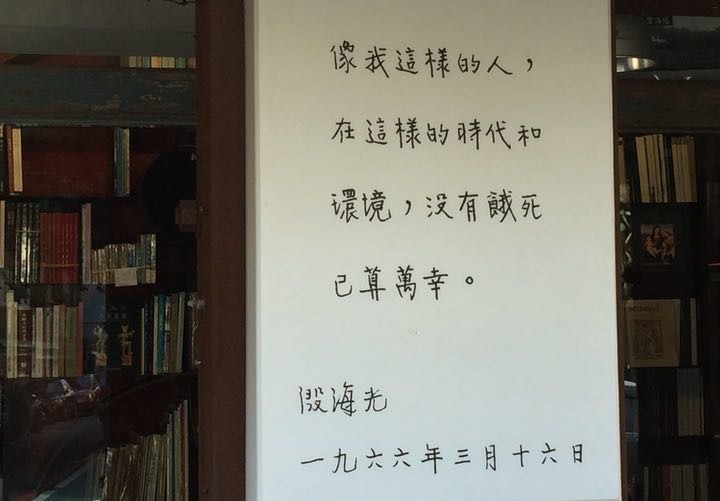 像我這樣的人，
在這樣的時代和
環境，沒有餓死
已算萬幸。
殷海光
一九六六年三月十六日